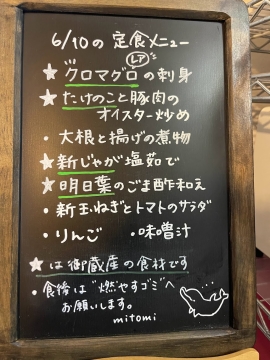 6/10の 定食メニュー
レア
★クロマグロの刺身
★たけのこと豚肉の
オイスター炒め
・大根と揚げの煮物
★新じゃが塩茹で
★明日葉のごま酢和え
・新玉ねぎとトマトのサラダ
・りんご ・味噌汁
★は御蔵産の食材です
・食後は"燃やすゴミ"へ
お願いします。
mitomi